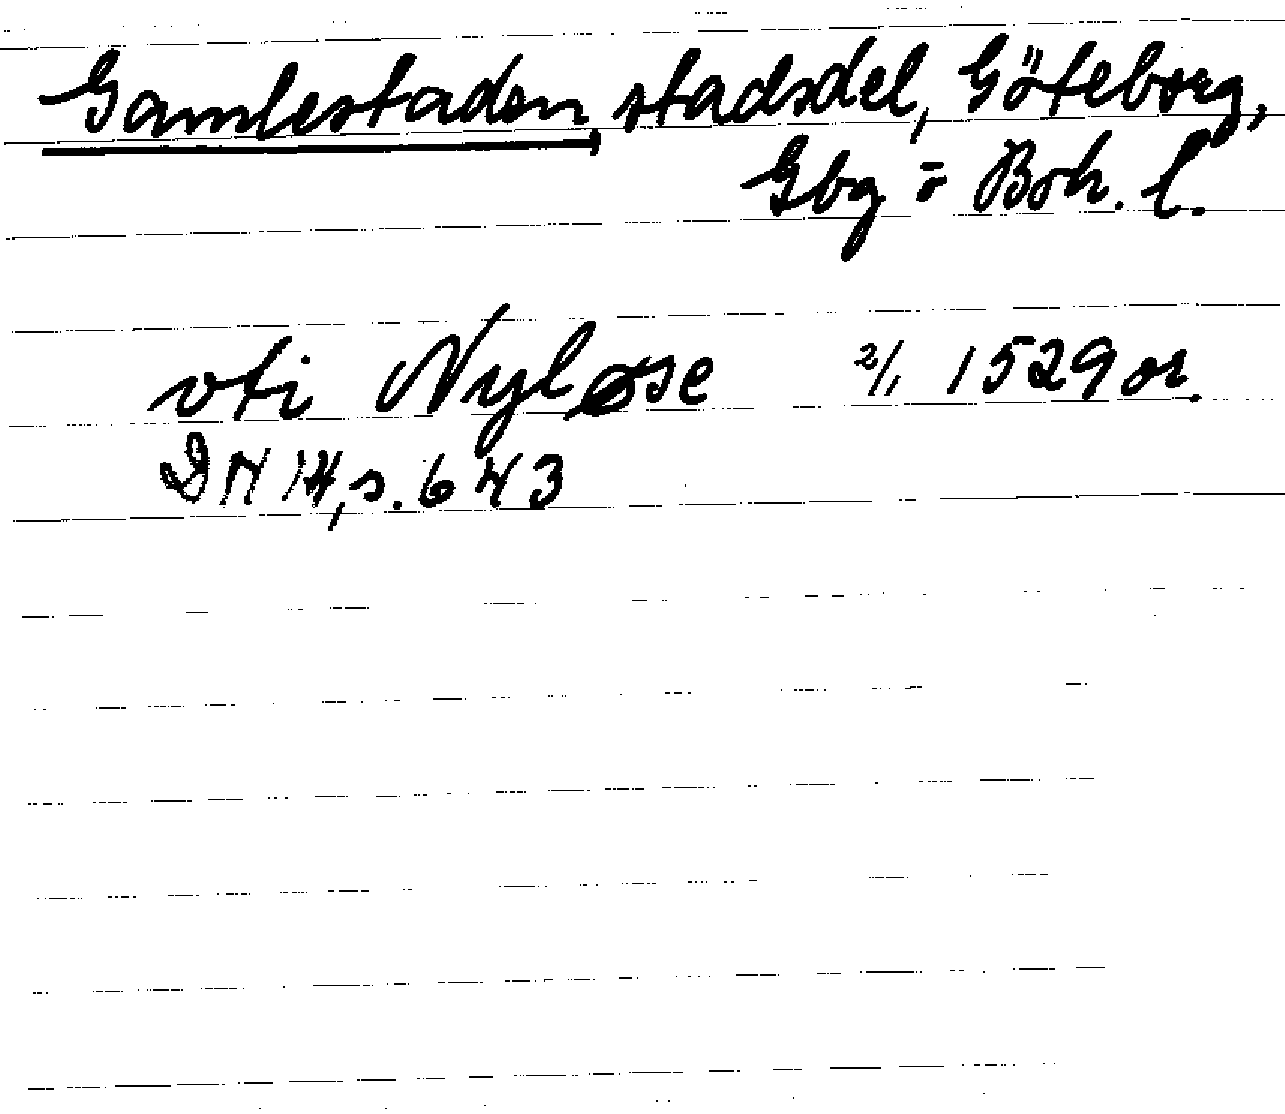 Gamlestaden, stadsdel, Göteborg,
Gbg o Boh. l.
vti Nyløse 2/1 1529 or.
DN 14, s. 643